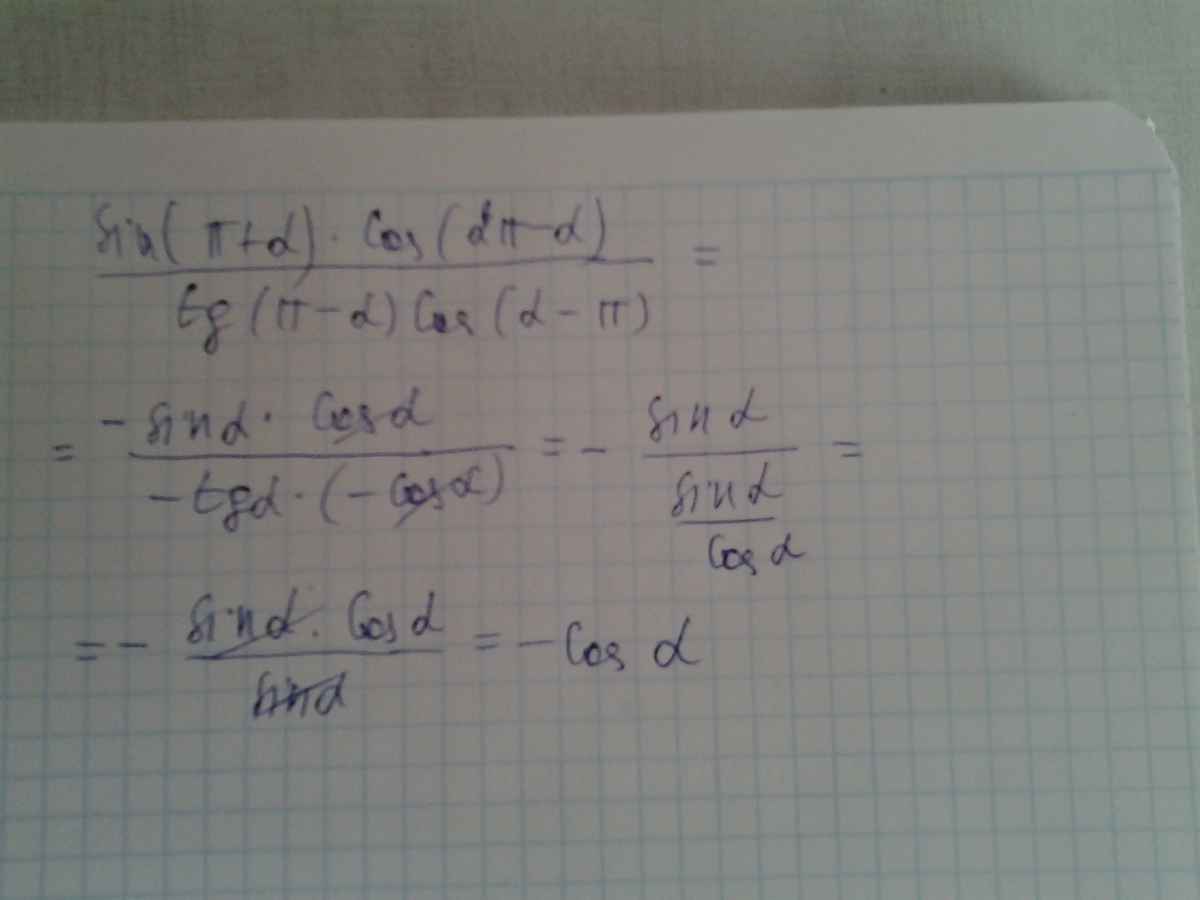 sin(π+α)·cos(2π-α) / tg(π-α)cos(α-π) =
= -sinα·cosα / -tgα·(-cosα) = - sinα / (sinα / cosα) =
= - sinα·cosα / sinα = -cos α